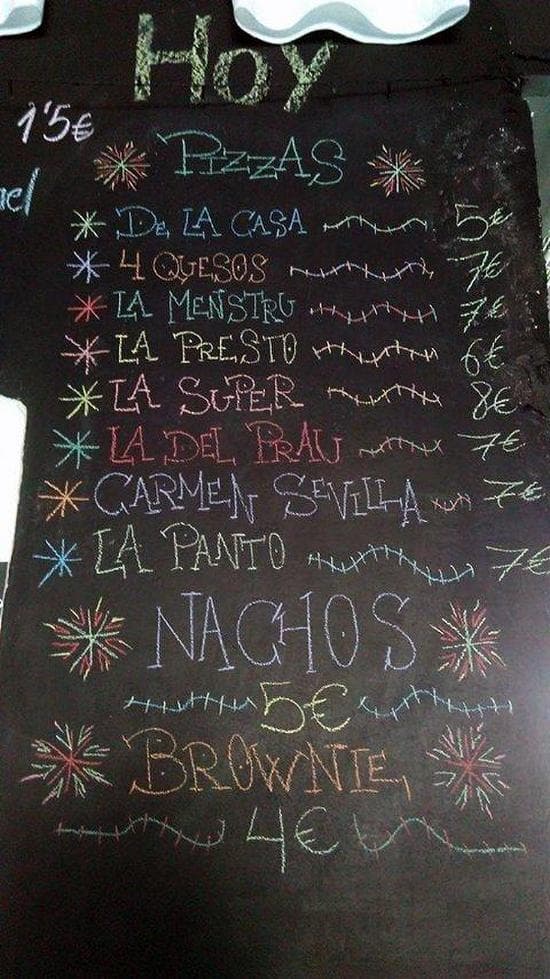 Hoy
1'5€
PIZZAS
De LA CASA 5€
4 QUESOS 7€
LA MENSTRU 7€
LA PRESTO 6€
LA SUPER 8€
LA DEL PRAU 7€
CARMEN SEVILLA 7€
LA PANTO 7€
NACHOS
5€
BROWNIE
4€